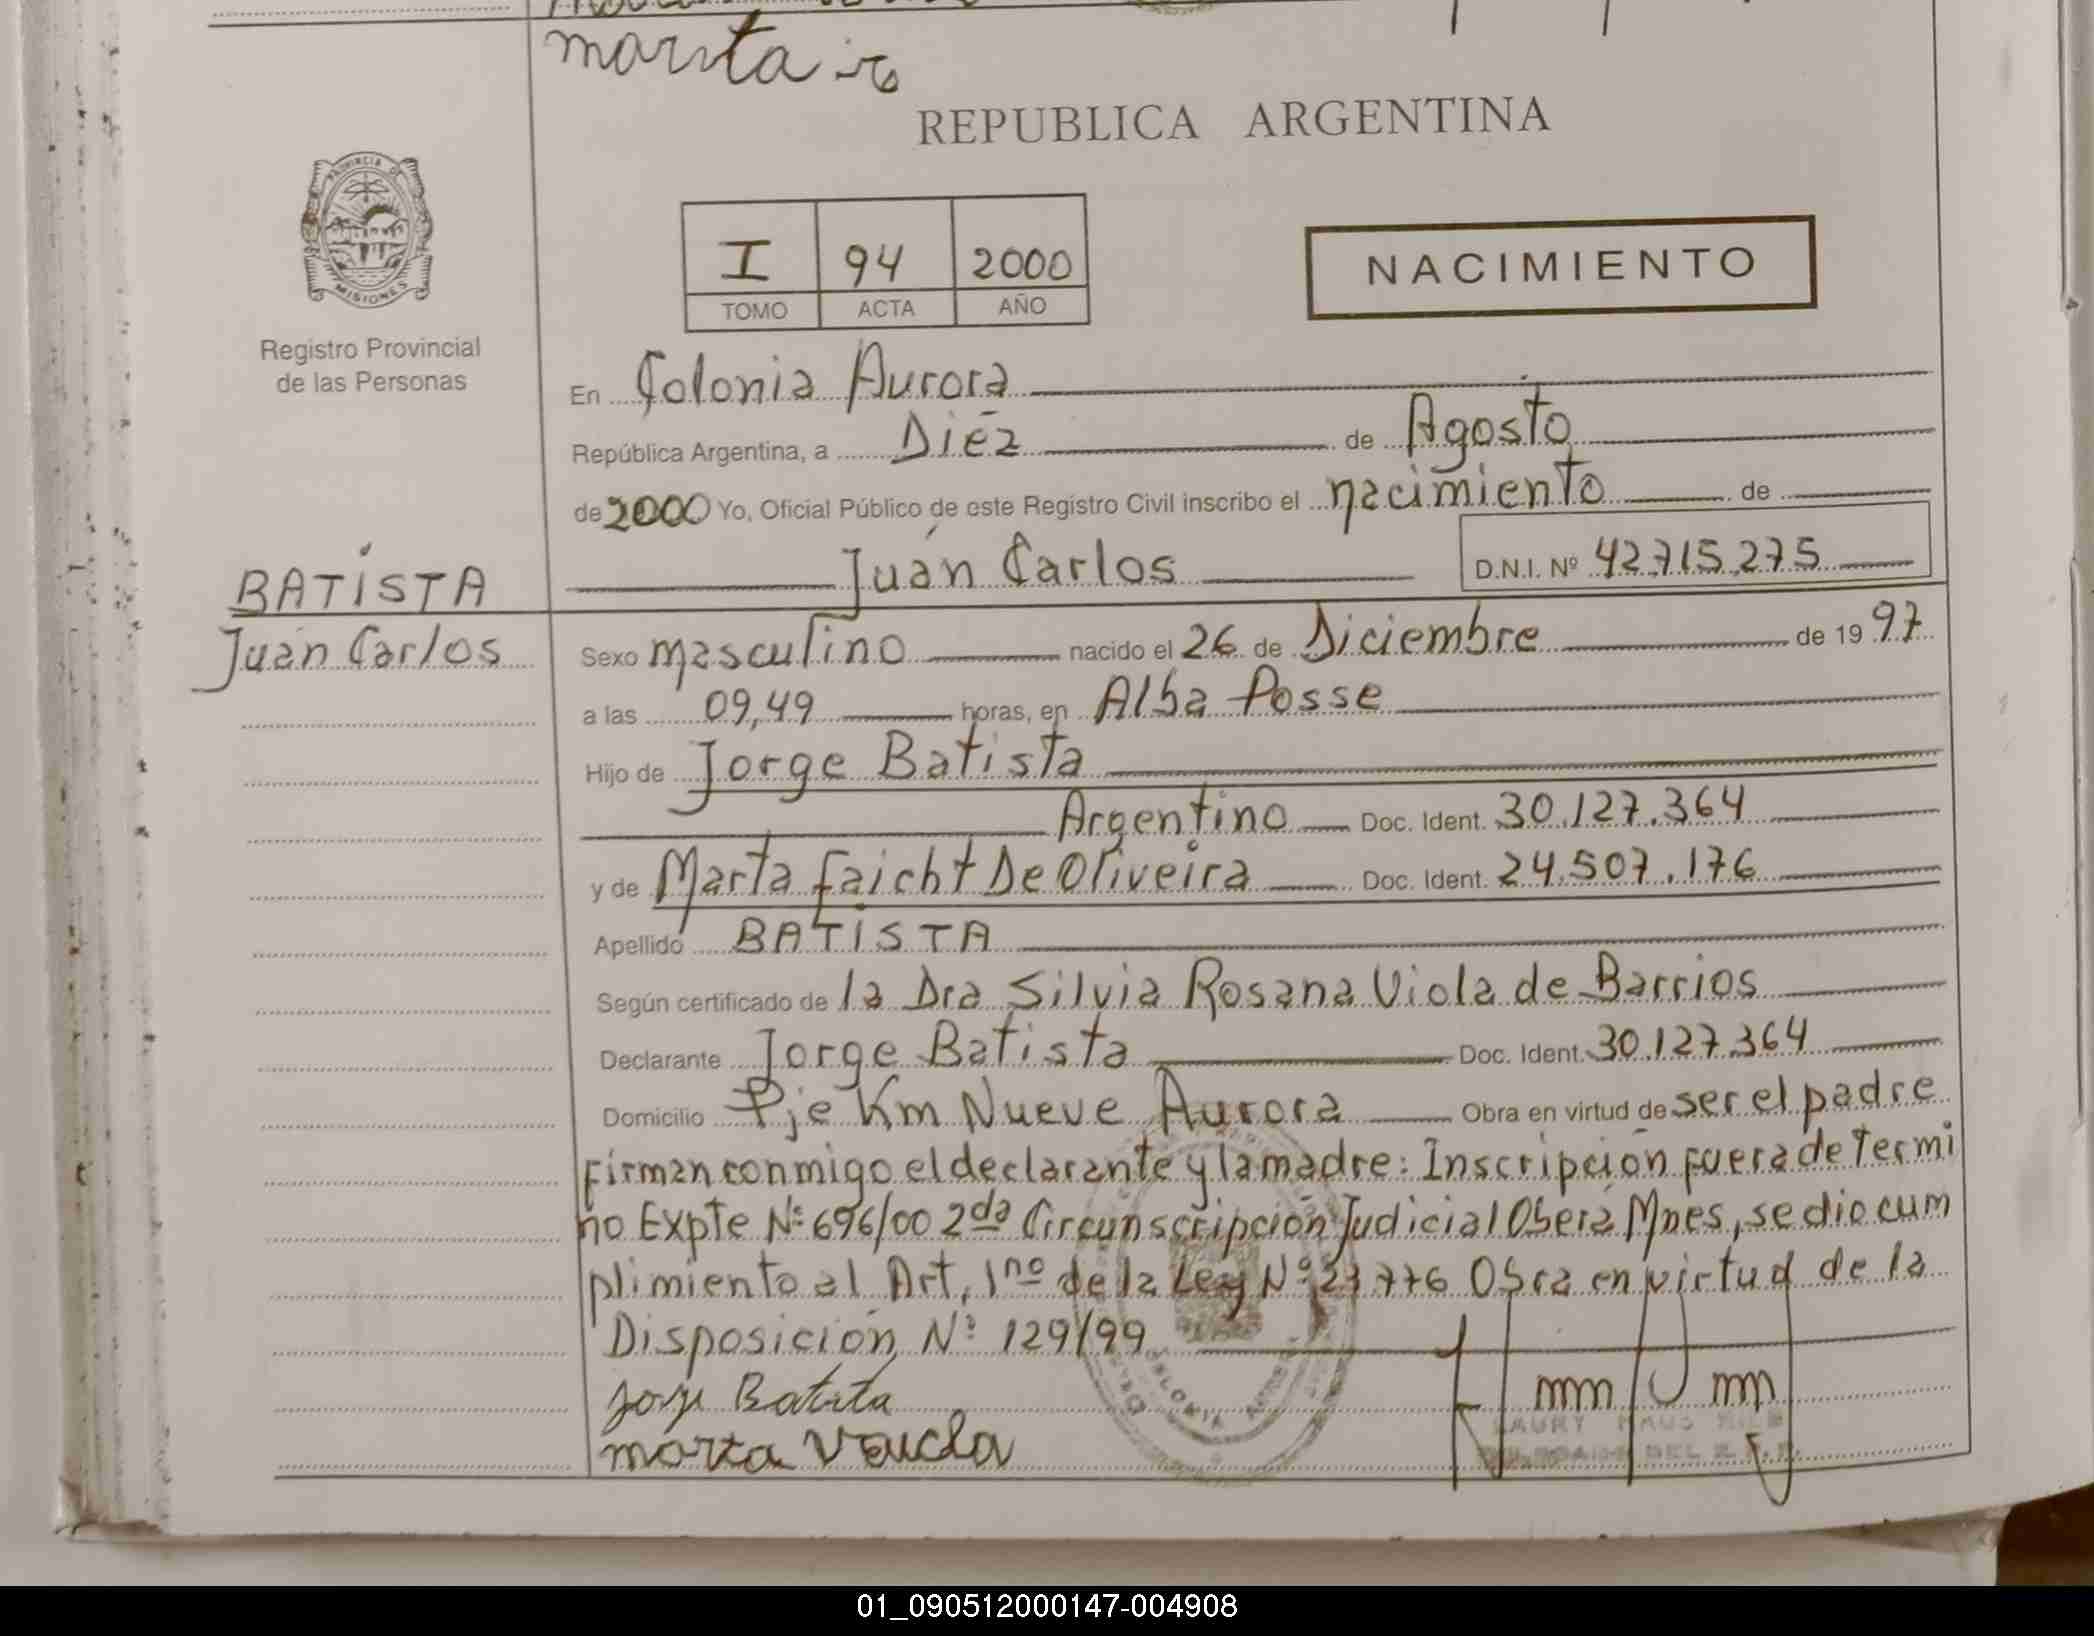 marita
REPUBLICA ARGENTINA
PROVINCIA DE
MISIONES
Registro Provincial
de las Personas
I 94 2000
TOMO ACTA AÑO
NACIMIENTO
En Colonia Aurora
República Argentina, a Diéz de Agosto
de 2000 Yo, Oficial Público de este Registro Civil inscribo el nacimiento de
Juán Carlos D.N.I. Nº 42.715.275
BATISTA
Juán Carlos
Sexo masculino nacido el 26 de Diciembre de 1997
a las 09,49 horas, en Alba Posse
Hijo de Jorge Batista
Argentino Doc. Ident. 30.127.364
y de Marta Faicht De Oliveira Doc. Ident. 24.507.176
Apellido BATISTA
Según certificado de la Dra Silvia Rosana Viola de Barrios
Declarante Jorge Batista Doc. Ident. 30.127.364
Domicilio Pje Km Nueve Aurora Obra en virtud de ser el padre
Firman conmigo el declarante y la madre: Inscripción fuera de Termi
no Expte Nº 696/00 2da Circunscripción Judicial Oberá Mnes, se dio cum
plimiento al Art, 1no de la Ley Nº 23776 Obra en virtud de la
Disposición Nº 129/99
Jorje Batista
marta
COLONIA
01_090512000147-004908